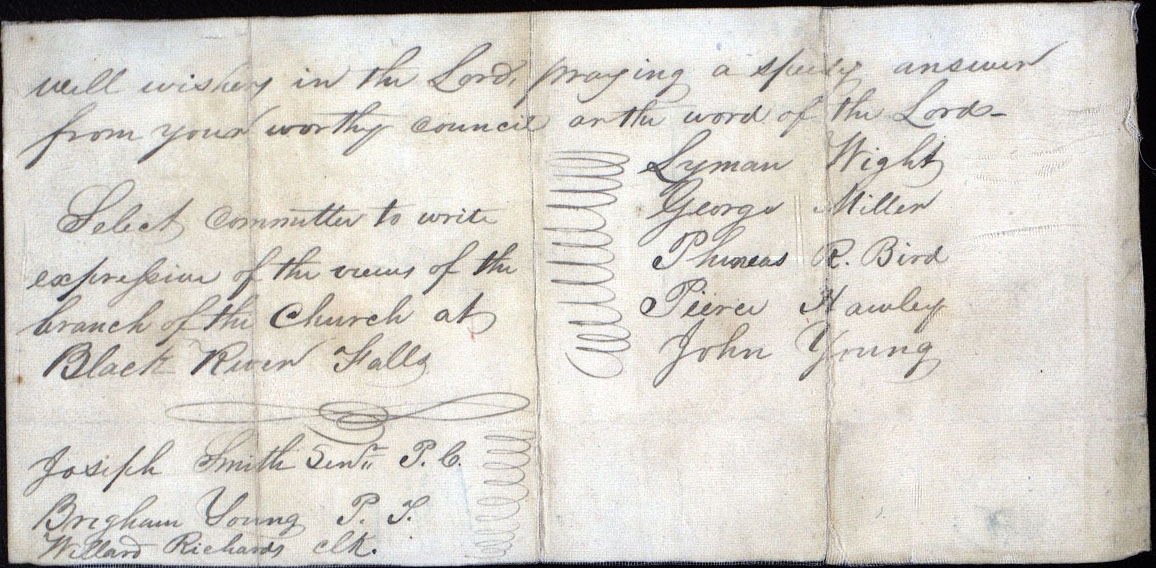 well wishers in the Lord, praying a speedy answer
from your worthy council or the word of the Lord-
Lyman Wight
George Miller
Phineas R. Bird
Pierce Hawley
John Young
Select committee to write
expressive of the views of the
branch of the Church at
Black River Falls
Joseph Smith Senr. P. C.
Brigham Young P. T.
Willard Richards clk.